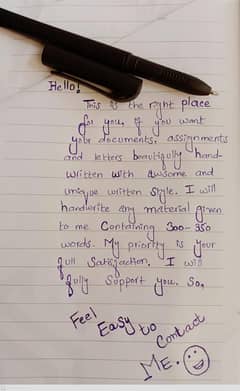 Hello!
This is the right place
for you, if you want
your documents, assignments
and letters beautifully hand-
written with awsome and
unique written style. I will
handwrite any material given
to me Containing 300-350
words. My priority is your
full Satisfaction. I will
fully Support you. So,
Feel
Easy to
Contact
ME.